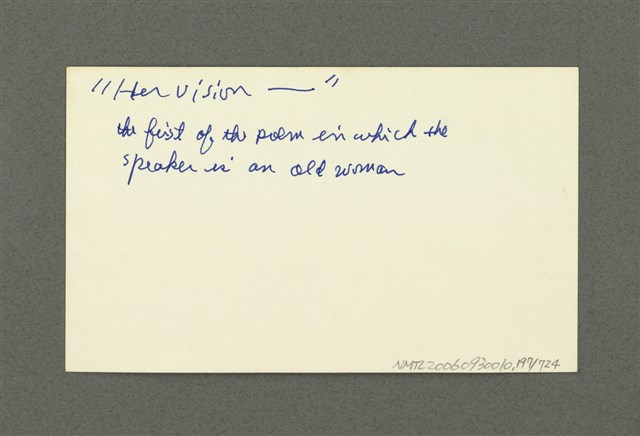 "Her vision —"
the first of the poem in which the
speaker is an old woman
NMTL20060930010,197/724